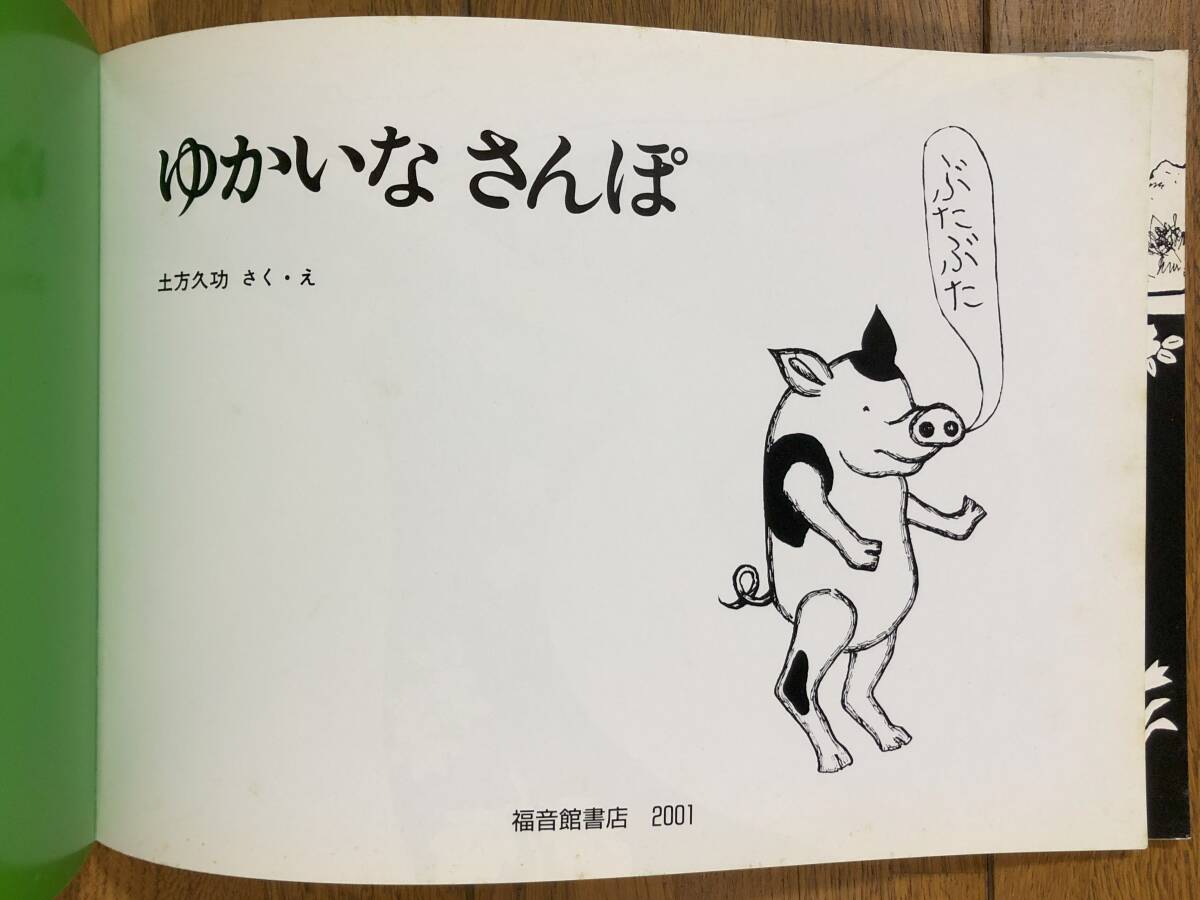 ゆかいな さんぽ
土方久功 さく・え
ぶたぶた
福音館書店 2001